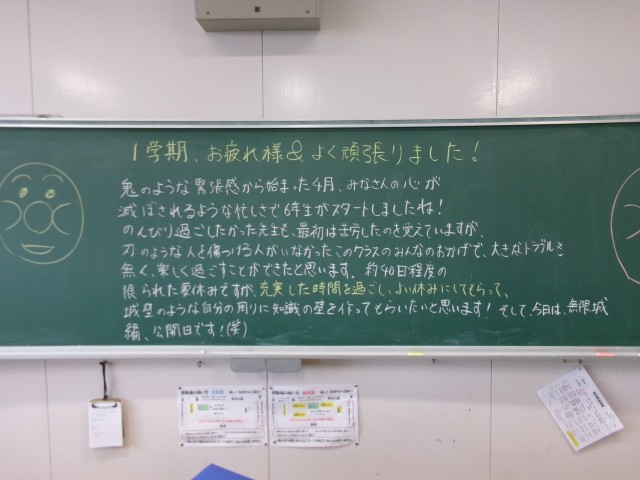 1学期、お疲れ様&よく頑張りました!
鬼のような緊張感から始まった4月、みなさんの心が
滅ぼされるような忙しさで6年生がスタートしましたね!
のんびり過ごしたかった先生も、最初は苦労したのを覚えていますが、
刀のような人を傷つける人がいなかったこのクラスのみんなのおかげで、大きなトラブルも
無く、楽しく過ごすことができたと思います。約40日程度の
限られた夏休みですが、充実した時間を過ごし、よい休みにしてもらって、
城壁のような自分の周りに知識の壁を作ってもらいたいと思います! そして、今日は、無限城
編、公開日です!(笑)